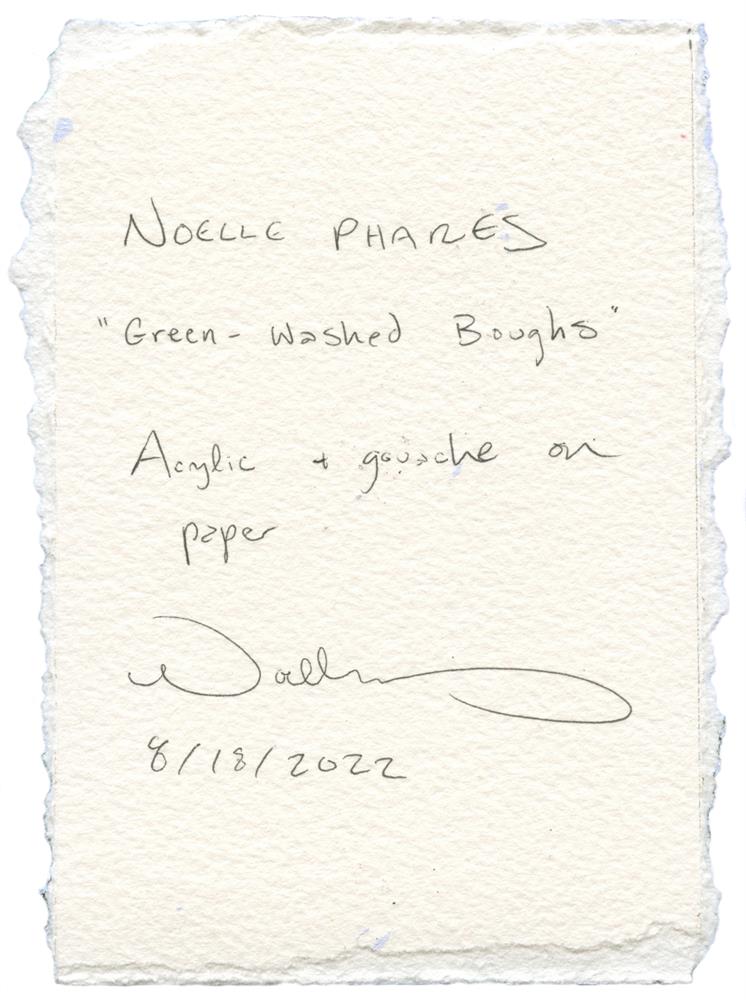 NOELLE PHARES
"Green-Washed Boughs"
Acrylic + gouache on
paper
Noelle
8/18/2022